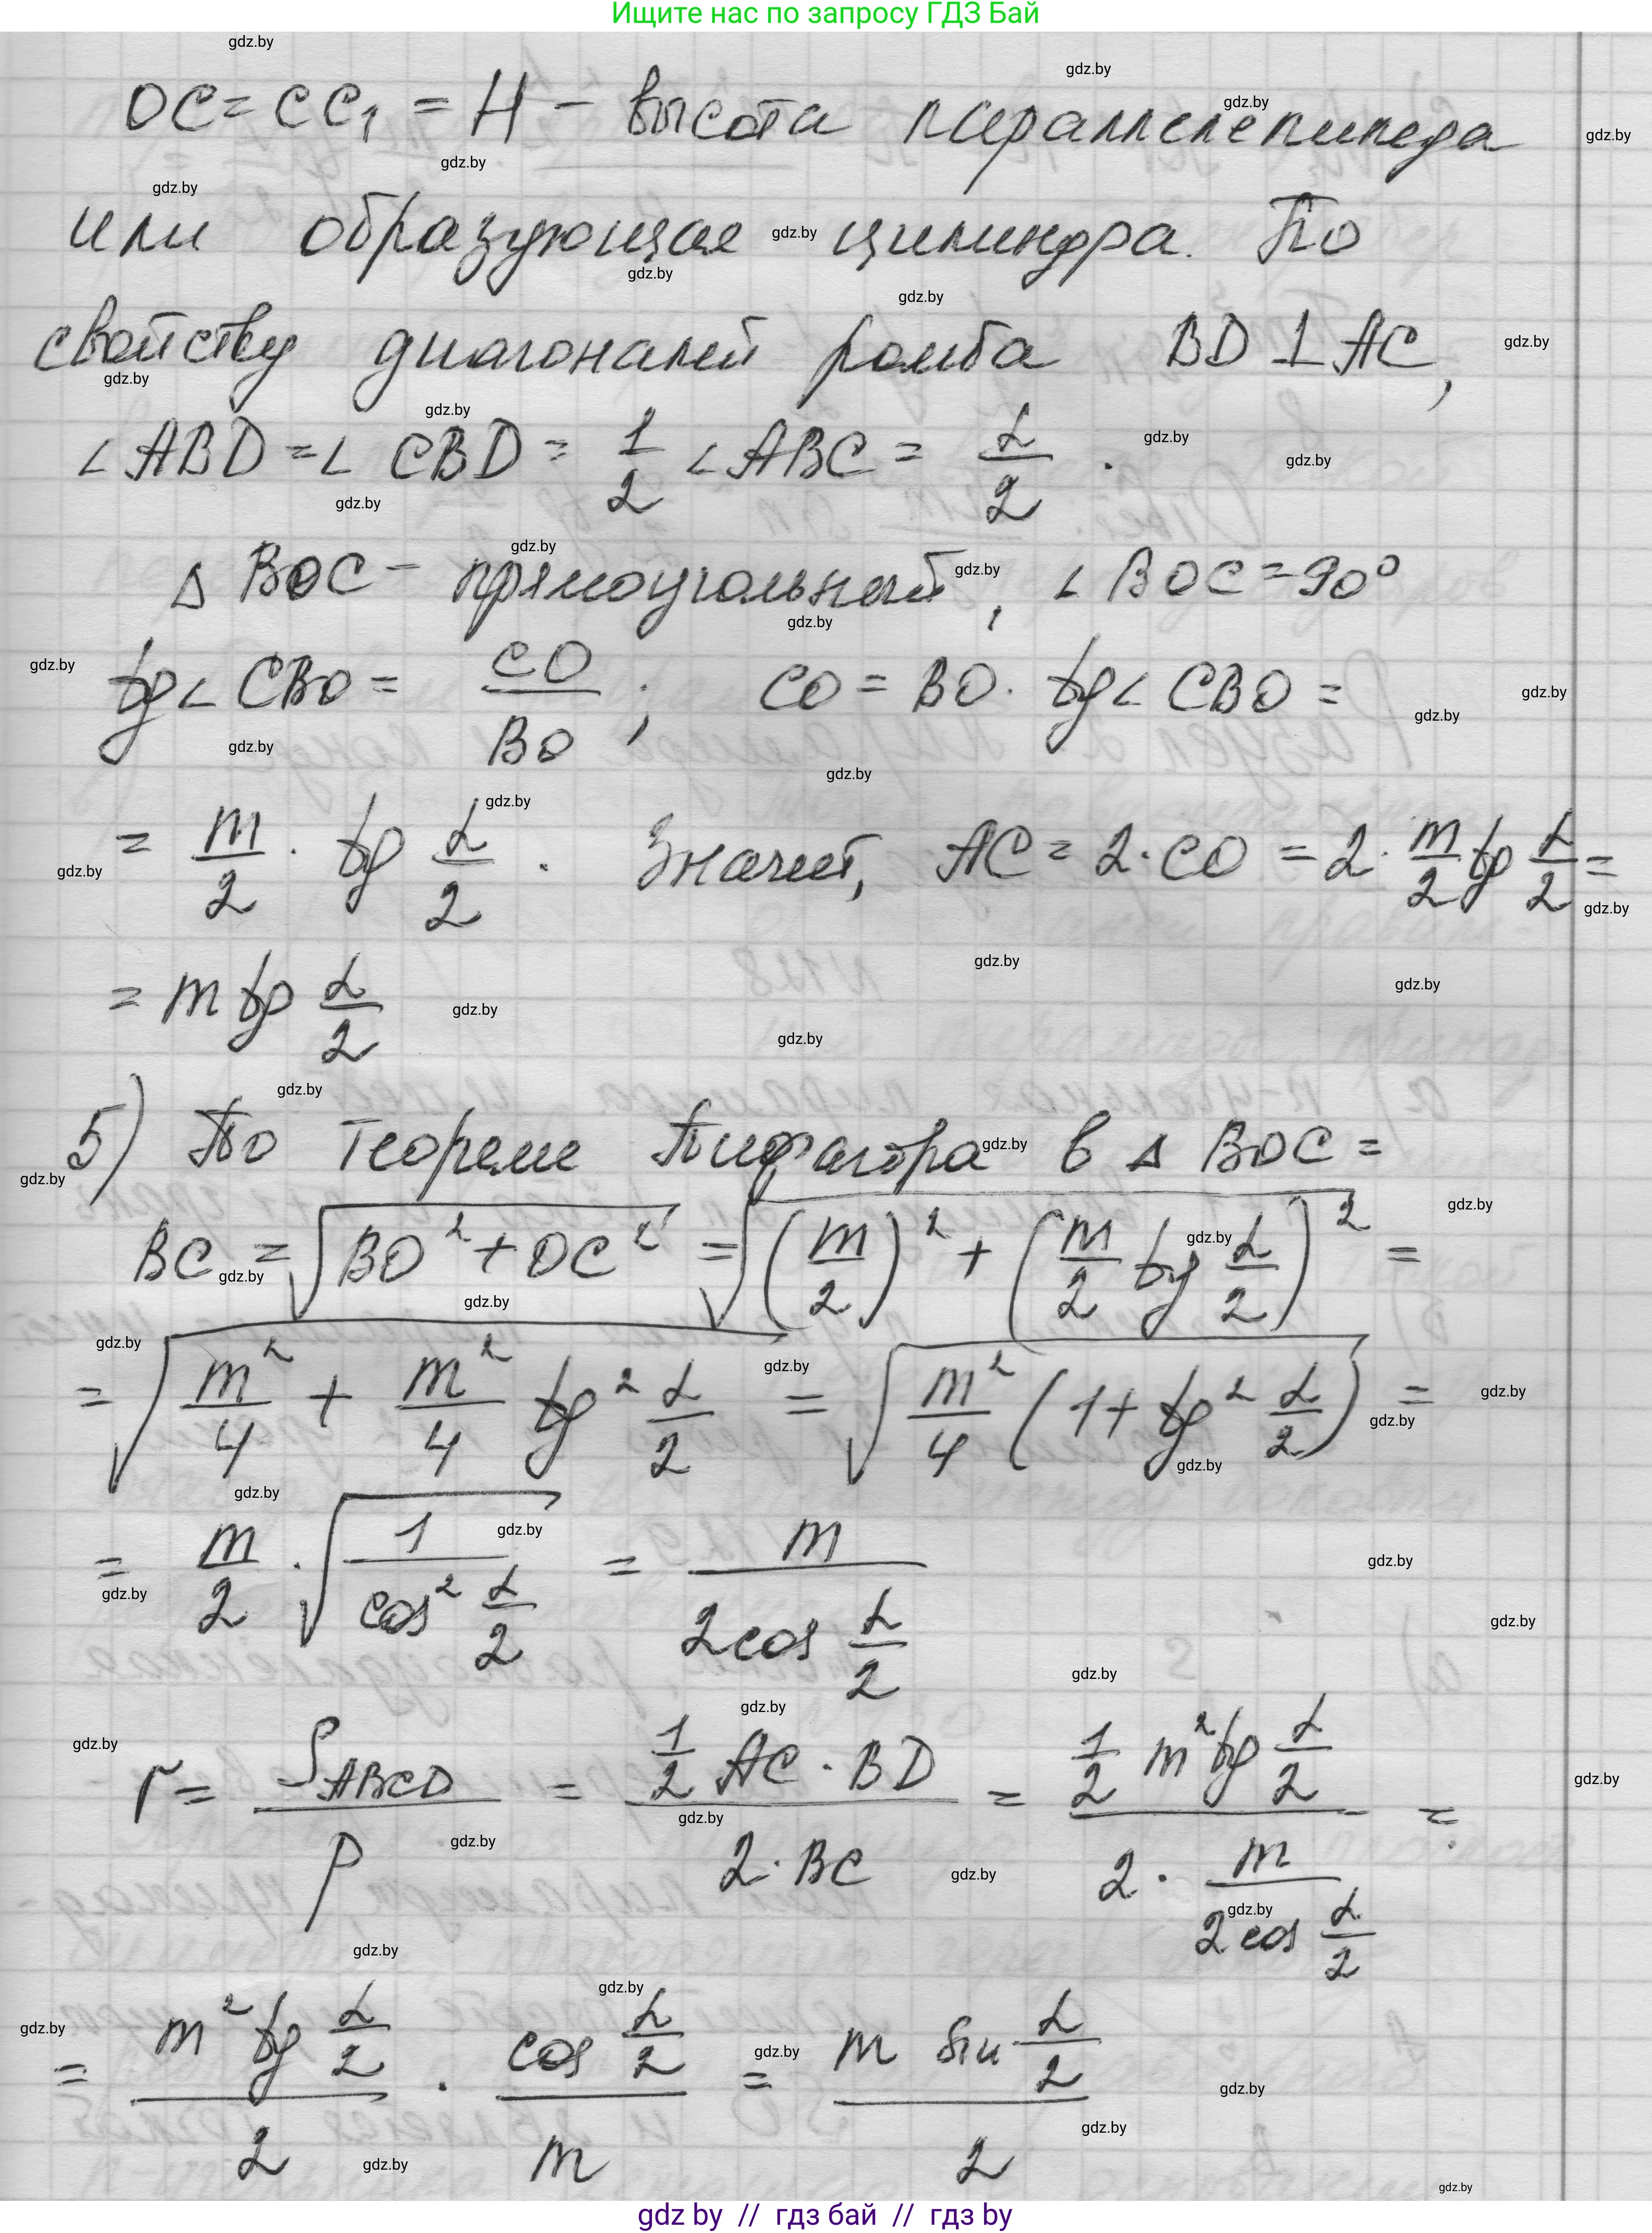 Ищите нас по запросу ГДЗ Бай
OC = CC₁ = H – высота параллелепипеда
или образующая цилиндра. По
свойству диагоналей ромба BD ⊥ AC,
∠ABD = ∠CBD = 1/2 ∠ABC = α/2.
Δ BOC – прямоугольный, ∠BOC = 90°
tg∠CBO = CO/BO; CO = BO · tg∠CBO =
= m/2 · tg α/2. Значит, AC = 2·CO = 2· m/2 tg α/2 =
= m tg α/2
5) По теореме Пифагора в Δ BOC =
BC = √(BO² + OC²) = √((m/2)² + (m/2 tg α/2)²) =
= √(m²/4 + m²/4 tg² α/2) = √(m²/4 (1 + tg² α/2)) =
= m/2 · √(1/cos² α/2) = m/(2cos α/2)
r = S_ABCD/p = (1/2 AC · BD)/(2 · BC) = (1/2 m² tg α/2)/(2 · m/(2cos α/2)) =
= (m² tg α/2)/2 · (cos α/2)/m = (m sin α/2)/2
gdz by // гдз бай // гдз by